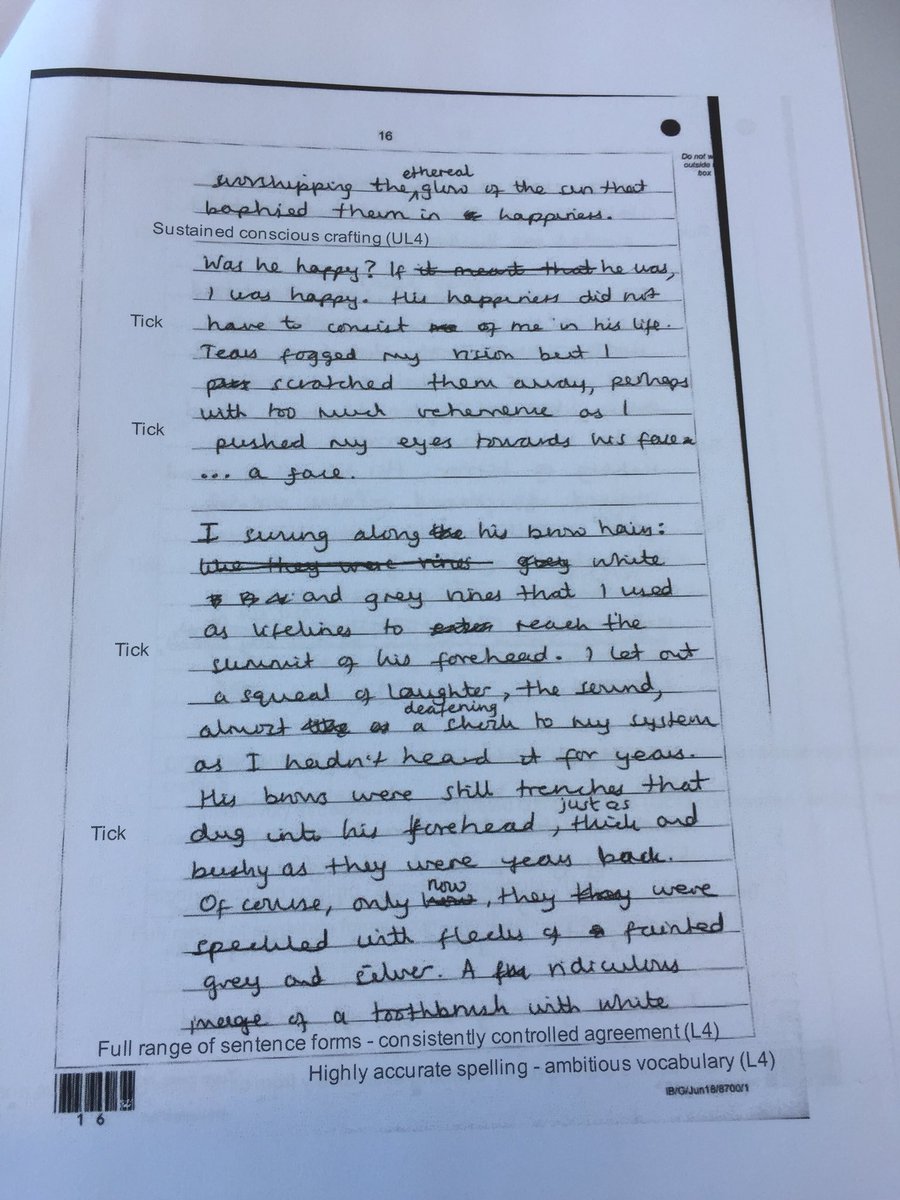 16
Do not w
outside
box
ethereal
worshipping the glow of the sun that
baphied them in happiness.
Sustained conscious crafting (UL4)
Was he happy? If it meant that he was,
I was happy. His happiness did not
Tick
have to consist of me in his life.
Tears fogged my vision but I
scratched them away, perhaps
with too much vehemence as I
Tick
pushed my eyes towards his face
... a face.
I swung along the his brow hair:
like they were vines grey white
and grey vines that I used
as lifelines to reach the
Tick
summit of his forehead. I let out
a squeal of laughter, the sound,
deafening
almost a shock to my system
as I hadn't heard it for years.
His brows were still trenches that
just as
Tick
dug into his forehead, thick and
bushy as they were years back.
now
Of course, only, they they were
speckled with flecks of fainted
grey and silver. A ridiculous
image of a toothbrush with white
Full range of sentence forms - consistently controlled agreement (L4)
Highly accurate spelling - ambitious vocabulary (L4)
1 6
IB/G/Jun18/8700/1